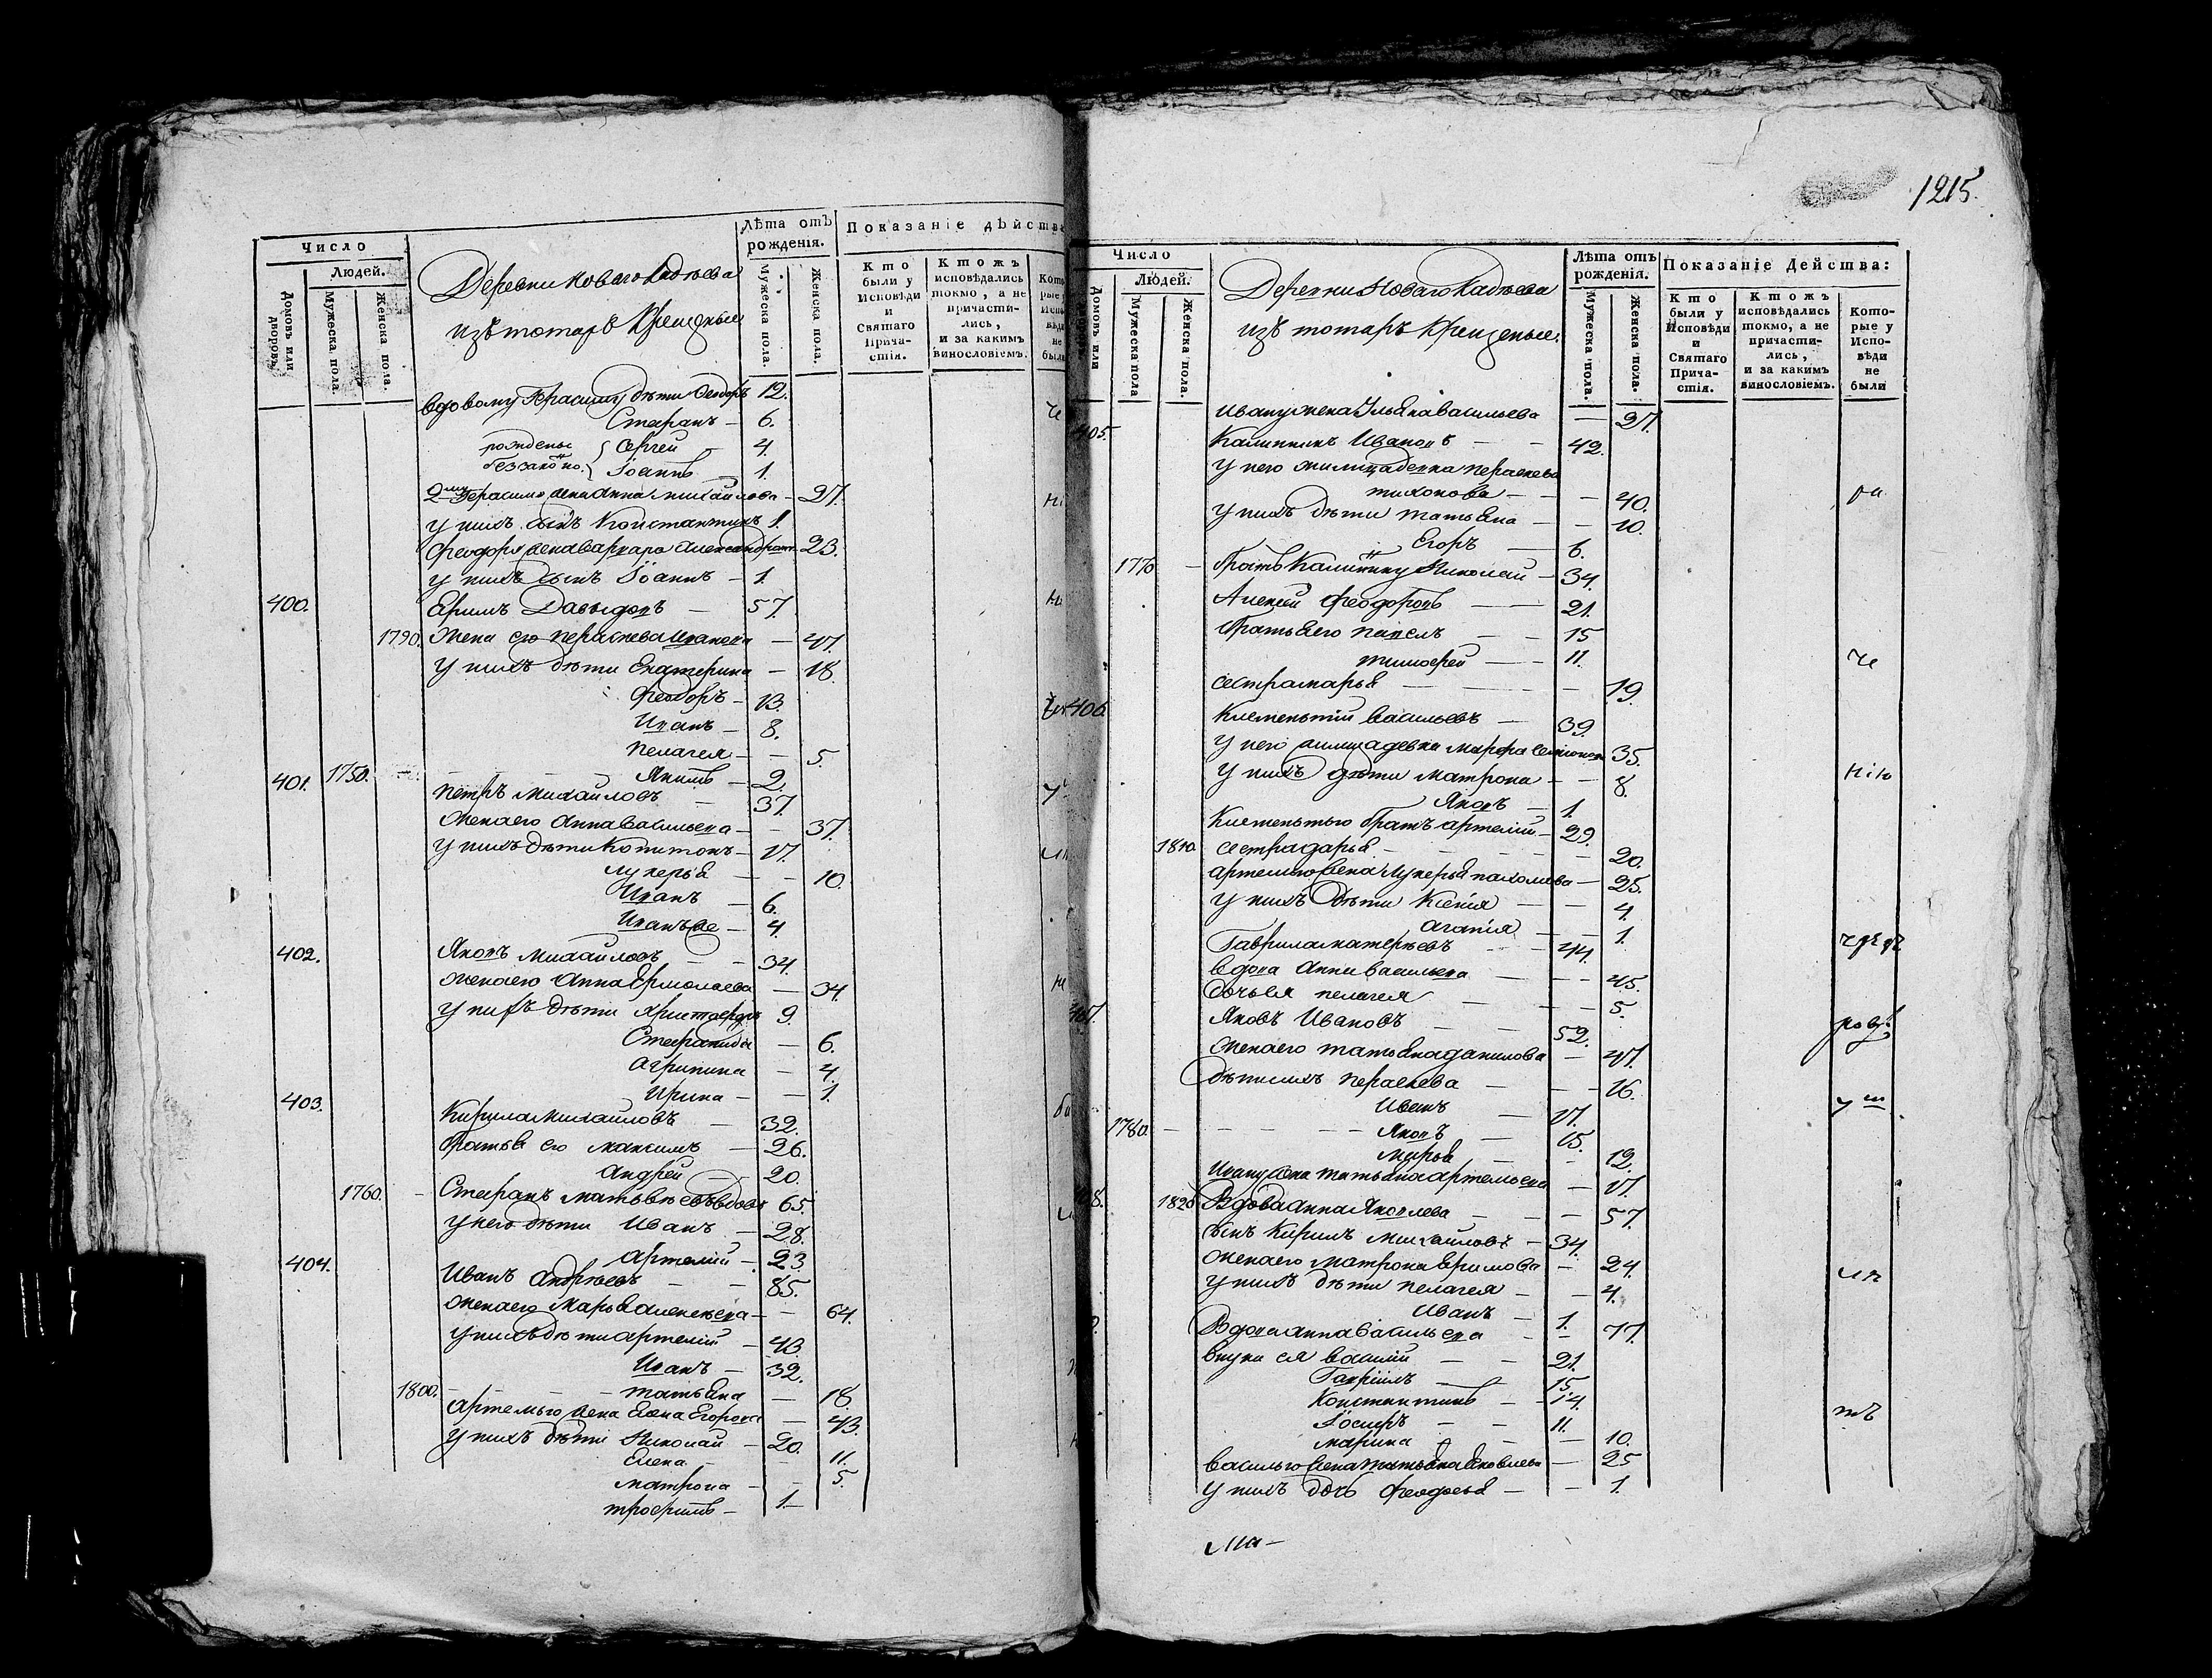 1215.
Число
Людей.
Домовъ или дворовъ.
Мужеска пола.
Женска пола.
Деревни Новаго Кадѣева
изъ татаръ Крещеные
Лѣта отъ рожденія.
Мужеска пола.
Женска пола.
Показаніе дѣйства
Кто были у Исповѣди и Святаго Прича-стія.
Ктожъ исповѣдались токмо, а не причасти-лись, и за какимъ винословіемъ.
вдовому Герасиму дѣти Феодоръ 12.
Стефанъ — 6.
рожденые беззаконно. Сергей — 4.
Іоаннъ — 1.
Герасима жена Анна Михайлова — 27.
у нихъ сынъ Константинъ 1.
Феодора жена Варвара Александрова 23.
у нихъ сынъ Іоаннъ — 1.
400. Ефимъ Давыдовъ — 57.
1790. Жена его Пераскева Иванова — 47.
у нихъ дѣти Екатерина — 18.
Феодоръ — 13.
Иванъ — 8.
Пелагея — — 5.
1750. Якимъ — 2.
401. Петръ Михайловъ — 37.
Жена его Анна Васильева — — 37.
у нихъ дѣти Капитонъ — 17.
Лукерья — — 10.
Иванъ — 6.
Иванъ же — 4.
402. Яковъ Михайловъ — — 34.
Жена его Анна Ермолаева — 34.
у нихъ дѣти Христофоръ 9.
Стефанида — 6.
Агрипина — 4.
Ирина — — 1.
403. Кирила Михайловъ — 32.
Братья его Максимъ — 26.
Андрей — 20.
1760. — Стефанъ Матвѣевъ вдовъ 65.
у него дѣти Иванъ — 28.
Артемій — 23.
404. Иванъ Андреевъ — — 85.
Жена его Марья Алексѣева — — 64.
у нихъ дѣти Артемій — 43.
Иванъ — 32.
1800. — — — — Татьяна — 18.
Артемья жена Елена Егорова — 43.
у нихъ дѣти Николай — 20.
Елена — — 11.
Матрона — — 5.
Трофимъ — 1.
Число
Людей.
Домовъ или
Мужеска пола
Женска пола.
Деревни Новаго Кадѣева
изъ татаръ Крещеные.
Лѣта отъ рожденія.
Мужеска пола.
Женска пола.
Показаніе Дейсmва:
Кто были у Исповѣди и Святаго Прича-стія.
Ктожъ исповѣдались токмо, а не причасти-лись, и за какимъ винословіемъ.
Кото-рые у Испо-вѣди не были
Ивану жена Ульяна Васильева — 27.
405. Калинникъ Ивановъ — — 42.
у него жилица девка Пераскева
Тихонова — — — 40.
у нихъ дѣти Татьяна — — 10.
Егоръ — 6.
1770 — братъ Калиннику Николай — 34.
Алексій Феодоровъ — — 21.
братья его Павелъ — — 15
Тимофей — — 11.
сестра Марья — — — 19.
406. Клементій Васильевъ — 39.
у него жилица девка Марфа Семионова 35.
у нихъ дѣти Матрона — — 8.
Яковъ — 1.
Клементью братъ Артемій — 29.
1810. сестра Дарья — — — 20.
Артемью жена Лукерья Пахомова — 25.
у нихъ дѣти Ксенія — — 4.
Агапія — — 1.
Гаврила Матфеевъ — — 44.
вдова Анна Васильева — — — 45.
дочь ея Пелагея — — — 5.
407. Яковъ Ивановъ — — 52.
Жена его Татьяна Данилова — 47.
дѣти ихъ Пераскева — — — 16.
Иванъ — 17.
1780. — — — — — Яковъ — 15.
Марья — — 12.
Ивану жена Татьяна Артемьева — 17.
408. 1820 Вдова Анна Яковлева — — — 57.
сынъ Кирилъ Михайловъ — 34.
Жена его Матрона Ефимова — 24.
у нихъ дѣти Пелагея — — 4.
Иванъ — 1.
Вдова Анна Васильева — — 77.
внуки ея Василій — — 21.
Гаврилъ — 15.
Константинъ — — 14.
Іосифъ — — 11.
Марина — — — 10.
Василью жена Татьяна Яковлева — 25
у нихъ дочь Феодосья — — 1.
Ма-